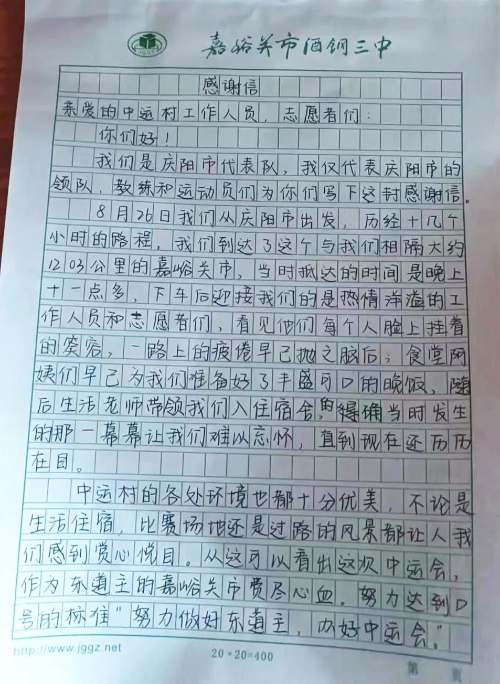 嘉峪关市酒钢三中
感谢信
亲爱的中运村工作人员、志愿者们:
你们好!
我们是庆阳市代表队,我仅代表庆阳市的
领队、教练和运动员们为你们写下这封感谢信。
8月26日我们从庆阳市出发,历经十几个
小时的路程,我们到达了这个与我们相隔大约
1203公里的嘉峪关市,当时抵达的时间是晚上
十一点多,下车后迎接我们的是热情洋溢的工
作人员和志愿者们,看见他们每个人脸上挂着
的笑容,一路上的疲倦早已抛之脑后;食堂阿
姨们早已为我们准备好了丰盛可口的晚饭,随
后生活老师带领我们入住宿舍,的得确当时发生
的那一幕幕让我们难以忘怀,直到现在还历历
在目。
中运村的各处环境也都十分优美,不论是
生活住宿,比赛场地还是过路的风景都让人我
们感到赏心悦目。从这可以看出这次中运会,
作为东道主的嘉峪关市费尽心血。努力达到口
号的标准"努力做好东道主,办好中运会。"
http://www.jggz.net
20×20=400
第 页